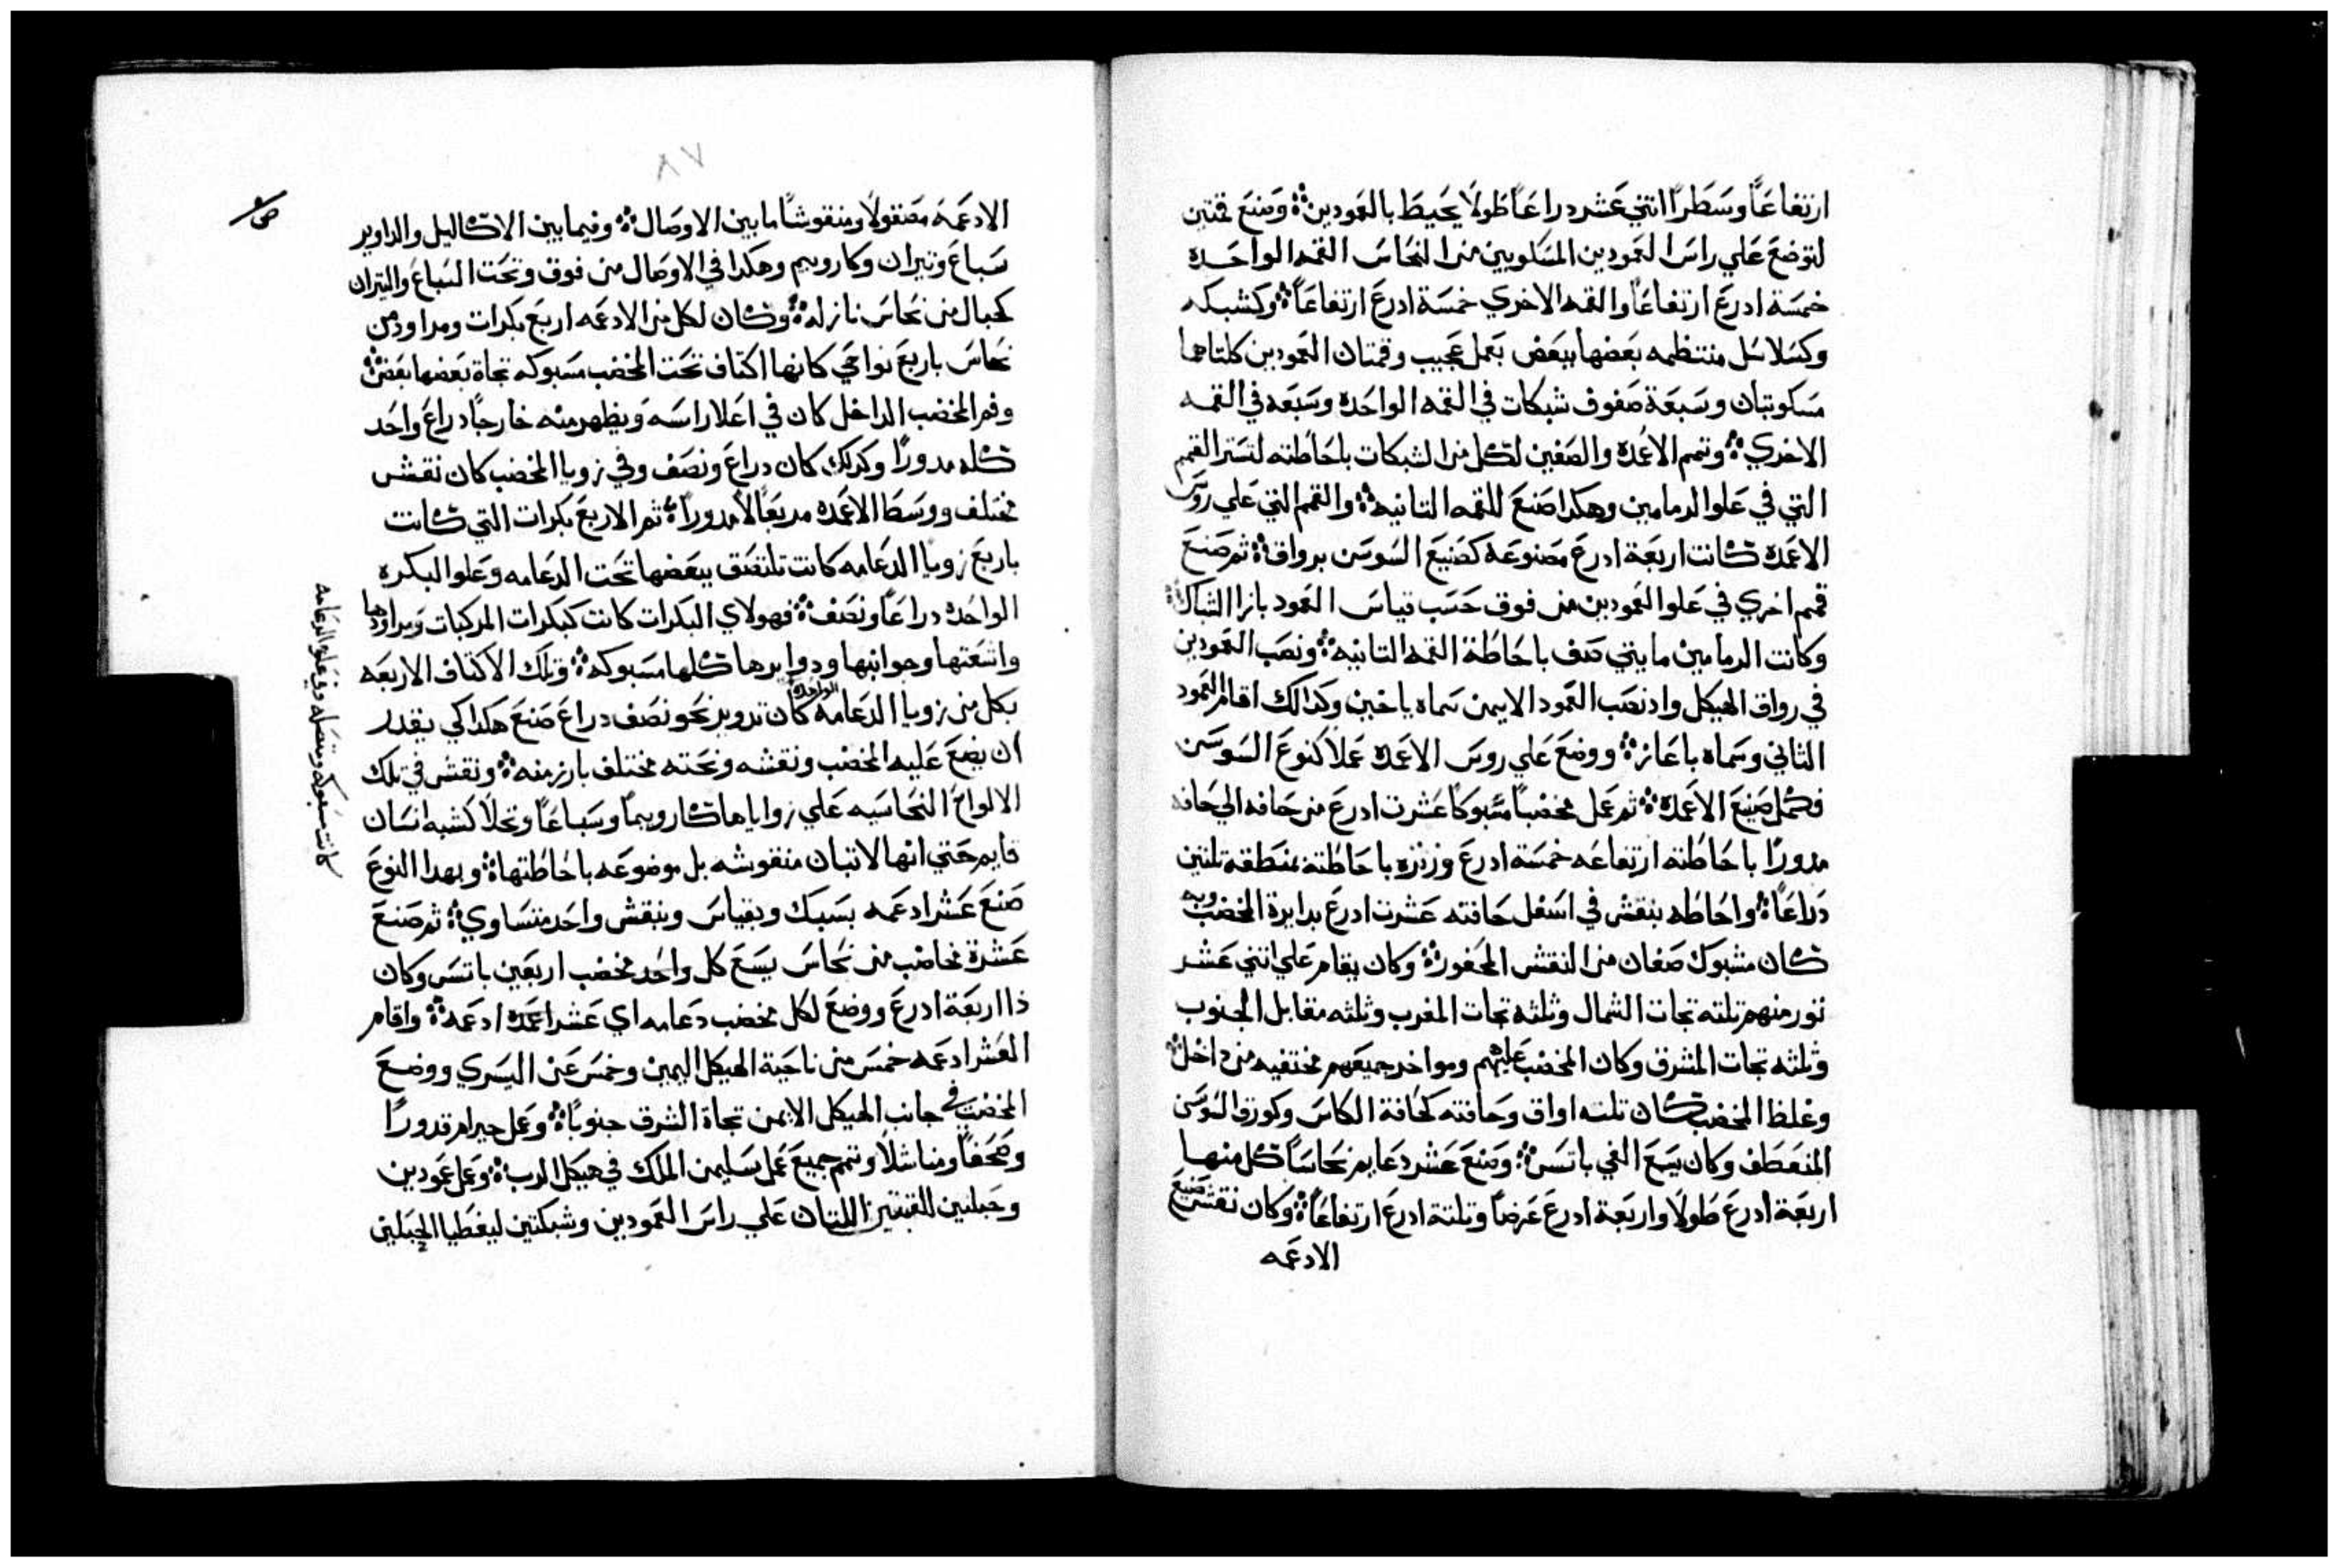 ارتفاعًا وسطرًا انتي عشر دراعًا طولًا يحيط بالعمودين وصنع قمتين
لتوضع علي راس العمودين المسكوبين من النحاس القمه الواحده
خمسة ادرع ارتفاعًا والقمه الاخري خمسة ادرع ارتفاعًا وكشبكه
وكسلاسل منتظمه بعضها ببعض بعمل عجيب وقمتان العمودين كلتاهما
مسكوبتان وسبعة صفوف شبكات في القمه الواحده وسبعه في القمه
الاخري وتمم الاعمده والصفين لكل من الشبكات باحاطته لتستر القمم
التي في علوا الرمامين وهكدا صنع للقمه التانيه والقمم التي علي روس
الاعمده كانت اربعة ادرع مصنوعة كصنيع السوسن برواق ثم صنع
قمم اخري في علوا العمودين من فوق حسب قياس العمود بازا الشباك
وكانت الرمامين مايتي صف باحاطة القمه التانيه ونصب العمودين
في رواق الهيكل واد نصب العمود الايمن سماه ياخين وكدالك اقام العمود
الثاني وسماه باعاز ووضع علي روس الاعمده عملا كنوع السوسن
فكمل صنيع الاعمده ثم عمل مخضبًا مسبوكًا عشرت ادرع من حافه الي حافه
مدورًا باحاطته ارتفاعه خمسة ادرع وزنزه باحاطته بمنطقه تلتين
دراعًا واحاطه بنقش في اسفل حافته عشرت ادرع بدايرة المخضب وبه
كان مشبوك صفان من النقش المحفور وكان يقام علي اتني عشر
تور منهم تلته تجات الشمال وثلثة تجات المغرب وثلثه مقابل الجنوب
وثلثه تجات المشرق وكان المخضب عليهم ومواخر جميعهم مختفيه من داخل
وغلظ المخضب كان تلته اواق وحافته كحافة الكاس وكورق السوسن
المنعطف وكان يسع الفي باتس وصنع عشر دعايم نحاسًا كل منها
اربعة ادرع طولًا واربعة ادرع عرضًا وتلتة ادرع ارتفاعًا وكان نقش صنيع
الادعمه
٨٧
الادعمة مصقولًا ومنقوشًا ما بين الاوصال وفيما بين الاكاليل والداوير
سباع وتيران وكارويم وهكدا في الاوصال من فوق وتحت السباع والتيران
كحبال من نحاس نازله وكان لكل من الادعمه اربع بكرات ومراود من
نحاس باربع نواحي كانها اكتاف تحت المخضب مسبوكه تجاة بعضها بعض
وفم المخضب الداخل كان في اعلا راسه ويظهر منه خارجًا دراع واحد
كله مدورًا وكدلك كان دراع ونصف وفي زويا المخضب كان نقش
مختلف ووسط الاعمده مربعًا لا مدورًا ثم الاربع بكرات التي كانت
باربع زويا الدعامه كانت تلتصق ببعضها تحت الدعامه وعلوا البكره
الواحده دراعًا ونصف فهولاي البكرات كانت كبكرات المركبات ومراودها
واشعتها وجوانبها ودوايرها كلها مسبوكه وتلك الاكتاف الاربعه
بكل من زويا الدعامه الواحده كان تدوير نحو نصف دراع صنع هكدا كي يقدر
ان يضع عليه المخضب ونقشه ونحته مختلف بارز منه ونقش في تلك
الالواح النحاسيه علي زواياها كارويمًا وسباعًا ونخلًا كشبه انسان
قايم حتي انها لا تبان منقوشه بل موضوعه باحاطتها وبهدا النوع
صنع عشر ادعمه بسبك وبقياس وبنقش واحد متساوي ثم صنع
عشرة مخاضب من نحاس يسع كل واحد مخضب اربعين باتس وكان
ذا اربعة ادرع ووضع لكل مخضب دعامه اي عشر اعمدة ادعمه واقام
العشر ادعمه خمس من ناحية الهيكل اليمين وخمس عن اليسري ووضع
المخضب في جانب الهيكل الايمن تجاة الشرق جنوبًا وعمل حيرام قدورًا
وصحفًا ومناشلًا وتمم جميع عمل سليمن الملك في هيكل الرب وعمل عمودين
وحبلين القبتين اللتان علي راس العمودين وشبكتين ليغطيا الحبلين
كانت مسبوكه ومتصله وفي علوا الدعامه